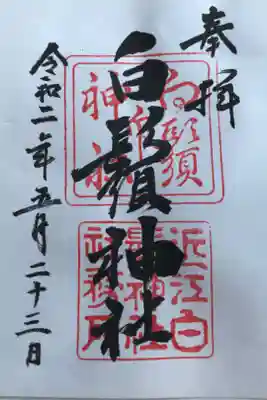 奉拝
白鬚神社
令和二年五月二十三日
近江白
鬚神社
社務所印